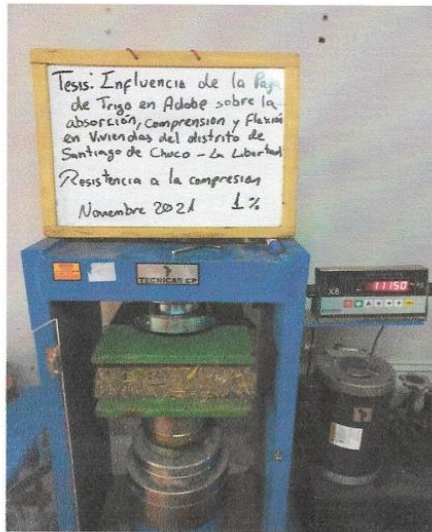 Tesis: Influencia de la Paja
de Trigo en Adobe sobre la
absorción, Compresion y Flexión
en Viviendas del distrito de
Santiago de Chuco - La Libertad
Resistencia a la compresion
Novembre 2021 1%
TECNICAS CP
X8
11150